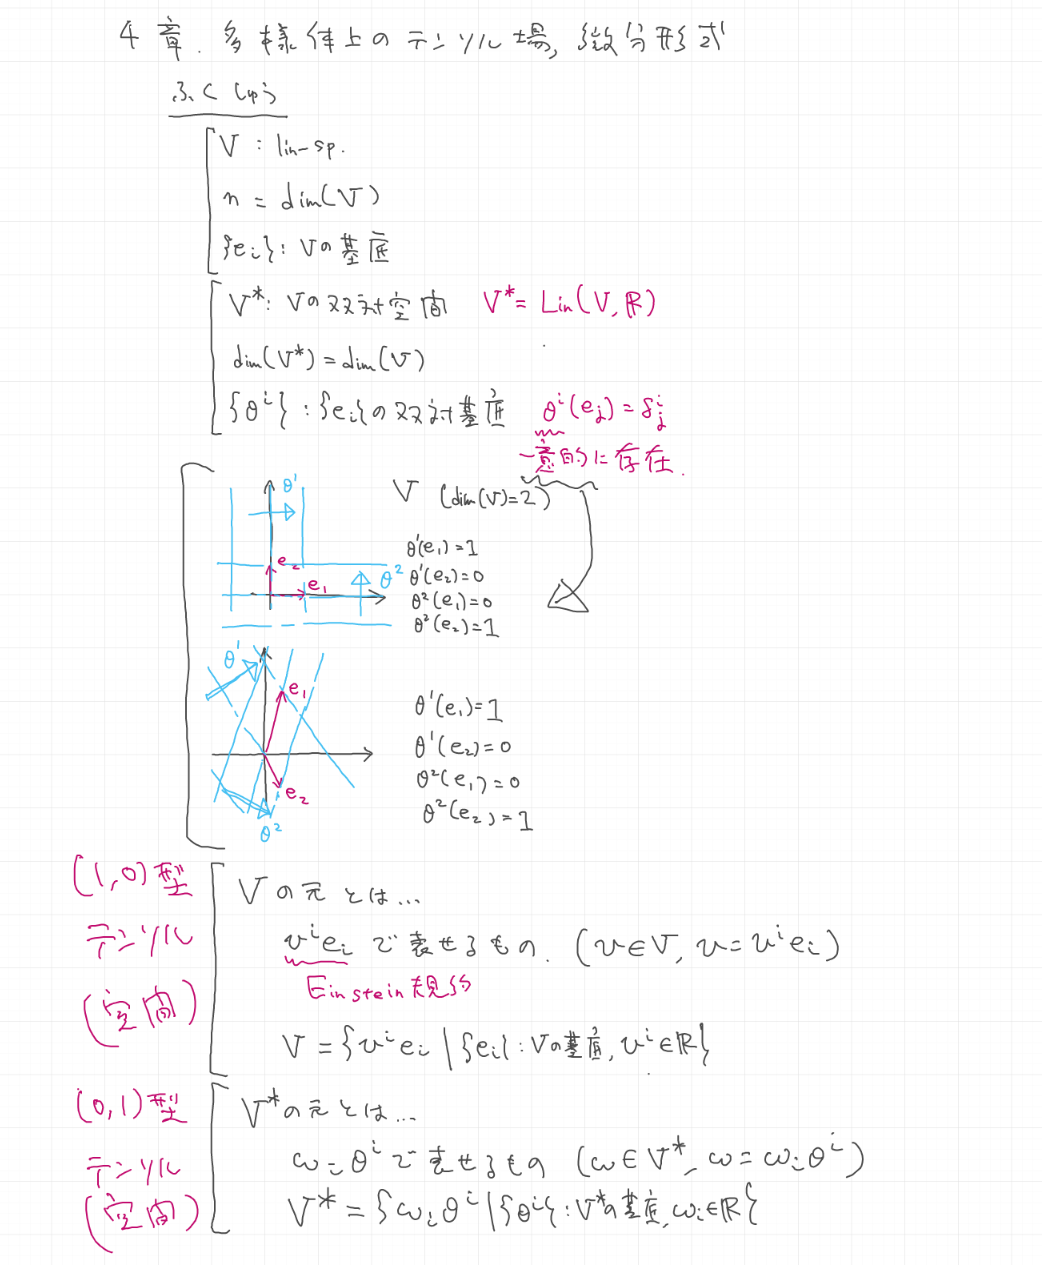 4章. 多様体上のテンソル場, 微分形式
ふくしゅう
V : lin-sp.
n = dim(V)
{ei} : Vの基底
V* : Vの双対空間 V* = Lin(V, ℝ)
dim(V*) = dim(V)
{θ^i} : {ei}の双対基底 θ^i(e_j) = δ^i_j
一意的に存在.
V (dim(V)=2)
θ^1
e_2
e_1
θ^2
θ^1(e_1) = 1
θ^1(e_2) = 0
θ^2(e_1) = 0
θ^2(e_2) = 1
θ^1
e_1
e_2
θ^2
θ^1(e_1) = 1
θ^1(e_2) = 0
θ^2(e_1) = 0
θ^2(e_2) = 1
(1,0)型
テンソル
(空間)
Vの元とは...
v^i e_i で表せるもの. (v∈V, v = v^i e_i)
Einstein規約
V = {v^i e_i | {ei} : Vの基底, v^i∈ℝ}
(0,1)型
テンソル
(空間)
V*の元とは...
ω_i θ^i で表せるもの (ω∈V*, ω = ω_i θ^i)
V* = {ω_i θ^i | {θ^i} : V*の基底, ω_i∈ℝ}